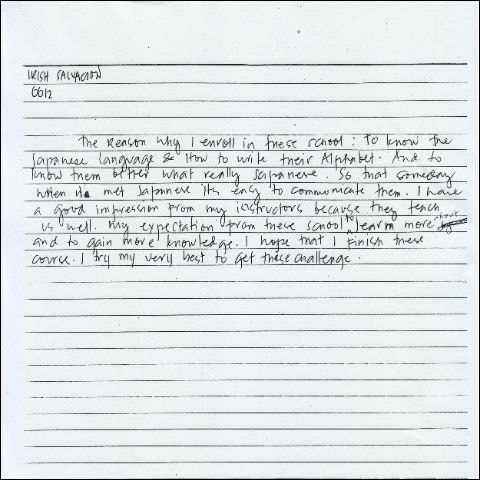 IRISH SALVACION
CG12
The Reason why I enroll in these school: To know the
Japanese Language & How to write their Alphabet. And to
know them better what really Japannese. So that someday
when met Japannese its easy to communicate them. I have
a good impression from my instructors because they teach
us well. My expectation from these school to learn more about
and to gain more knowledge. I hope that I finish these
course. I try my very best to get these challenge.